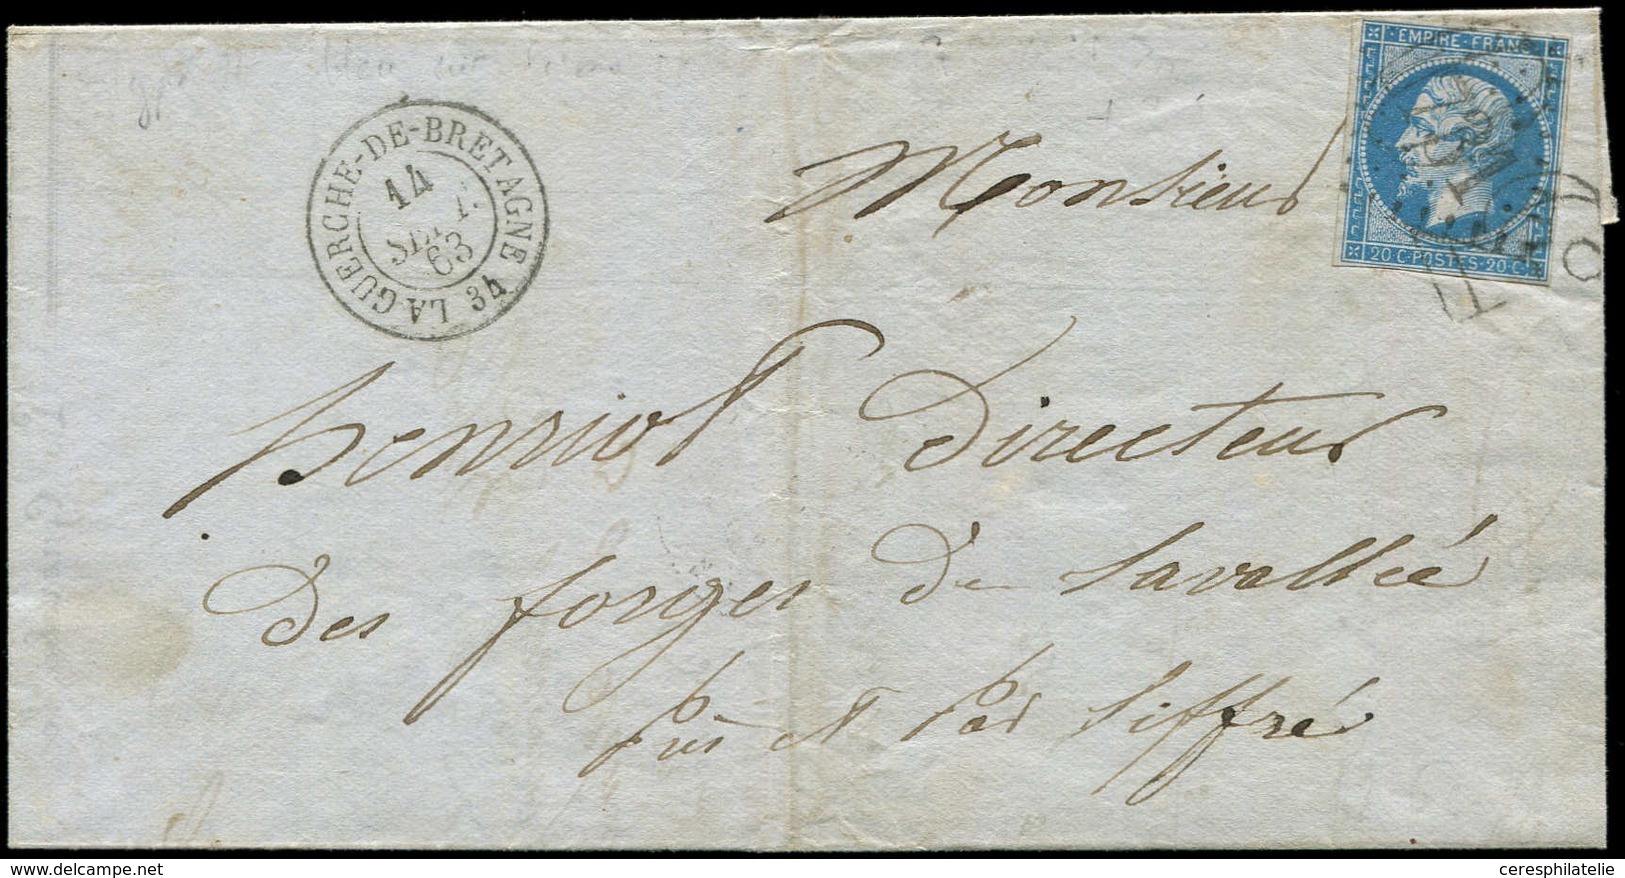 LA GUERCHE-DE-BRETAGNE 34
14
SEPT.
63
EMPIRE-FRANC
20 C-POSTES-20 C
Monsieur
henriot Directeur
Des forges De Lavallée
près et Par Liffré
ceresphilatelie